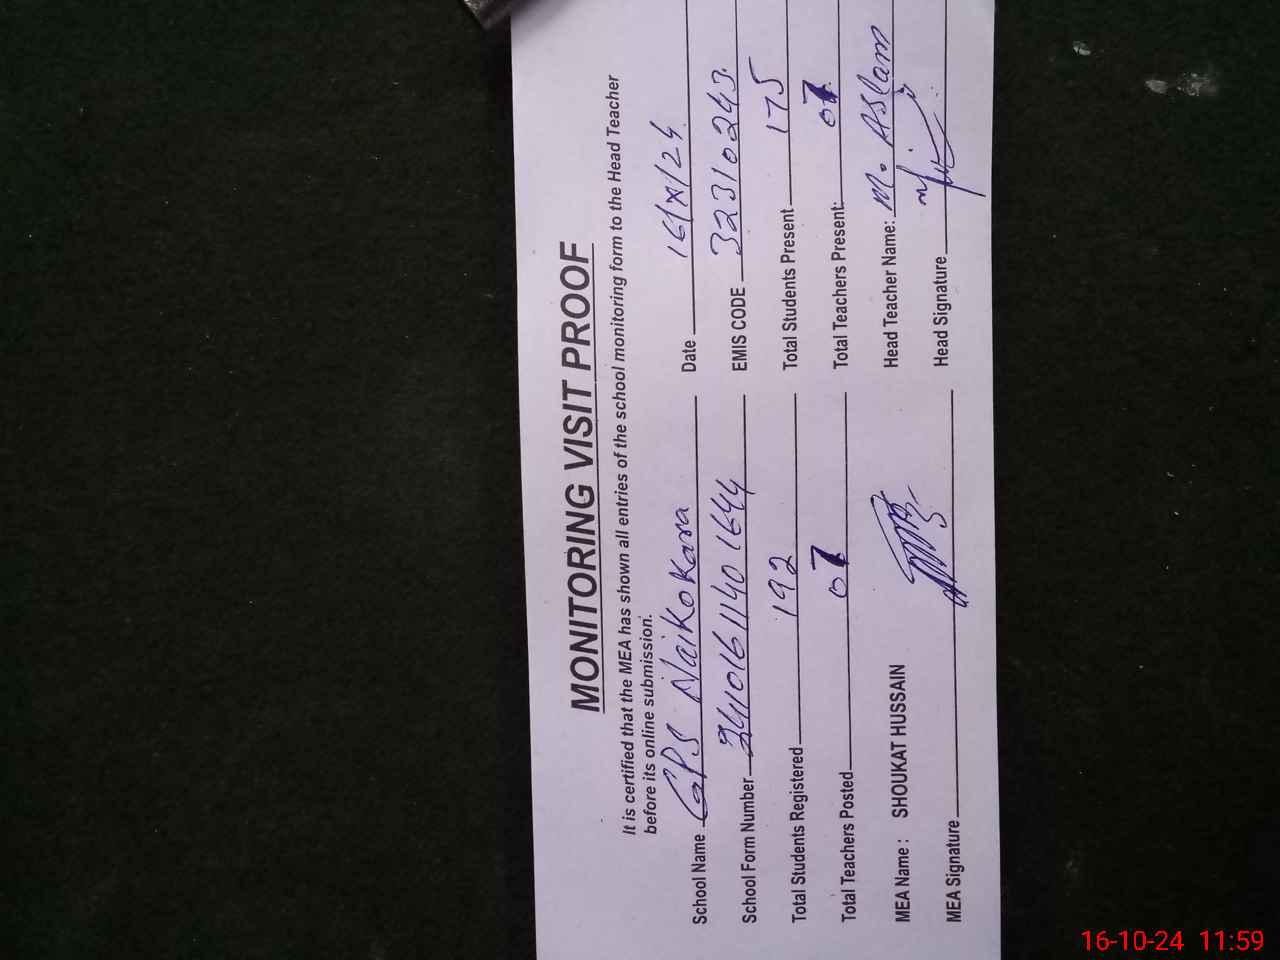 MONITORING VISIT PROOF
It is certified that the MEA has shown all entries of the school monitoring form to the Head Teacher
before its online submission.
School Name GPS Naikokara Date 16/X/24
School Form Number 24101611401644 EMIS CODE 32310243
Total Students Registered 192 Total Students Present 175
Total Teachers Posted 07 Total Teachers Present: 07
MEA Name : SHOUKAT HUSSAIN Head Teacher Name: M. Aslam
MEA Signature Head Signature
16-10-24 11:59